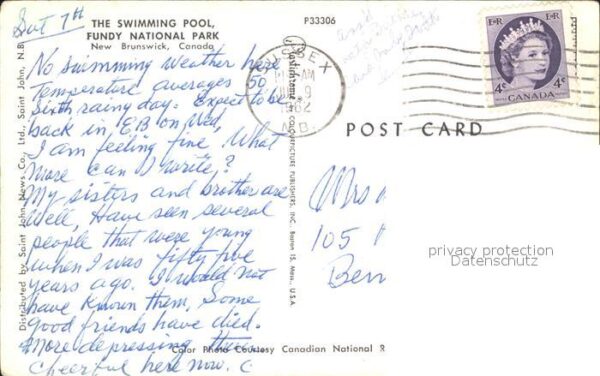 Sat 7th
THE SWIMMING POOL,
FUNDY NATIONAL PARK
New Brunswick, Canada
P33306
No swimming weather here
Temperature averages 50
Sixth rainy day. Expect to be
back in EB on Wed,
I am feeling fine. What
more can I write,?
My sisters and brother are
well, Have seen several
people that were young
when I was fifty five
years ago. I would not
have known them, Some
good friends have died.
More depressing than
cheerful here now. C
Distributed by Saint John News Co., Ltd., Saint John, N.B.
COLOURPICTURE PUBLISHERS, INC. Boston 15, Mass., U.S.A.
Color Photo Courtesy Canadian National R
SUSSEX
AM
9
1962
N.B.
E II R
E II R
4¢
4¢
CANADA
POST CARD
Mrs
105
Ben
privacy protection
Datenschutz